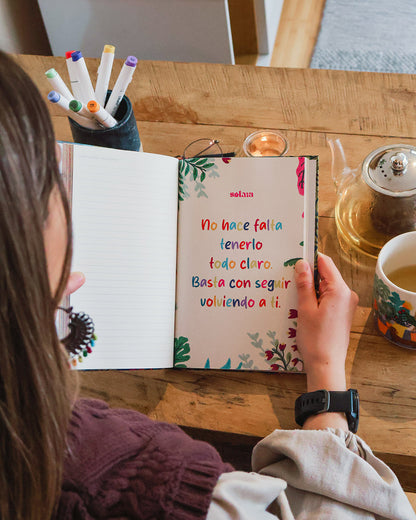 solara
No hace falta
tenerlo
todo claro.
Basta con seguir
volviendo a ti.